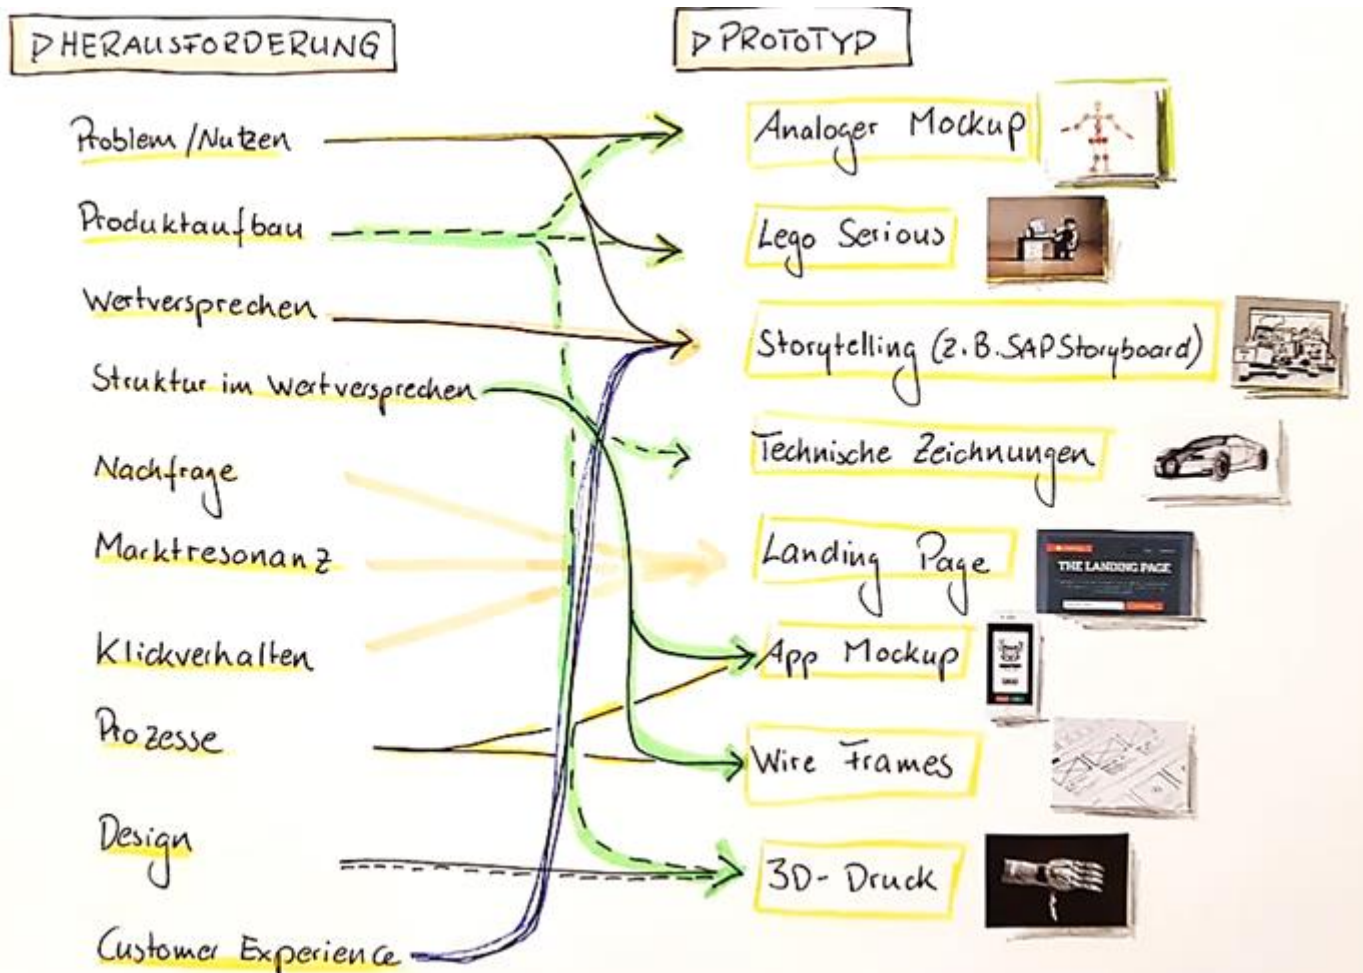 ▷ HERAUSFORDERUNG
▷ PROTOTYP
Problem/Nutzen
Produktaufbau
Wertversprechen
Struktur im Wertversprechen
Nachfrage
Marktresonanz
Klickverhalten
Prozesse
Design
Customer Experience
Analoger Mockup
Lego Serious
Storytelling (z.B. SAP Storyboard)
Technische Zeichnungen
Landing Page
THE LANDING PAGE
App Mockup
Wire Frames
3D-Druck